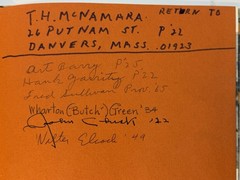 T.H. McNAMARA. RETURN TO
26 PUTNAM ST. P'22
DANVERS, MASS. 01923
Art Barry P'25
Hank Garrity P'22
Fred Sullivan Prov. '65
Wharton ("Butch") Green '54
John '22
Walter '49